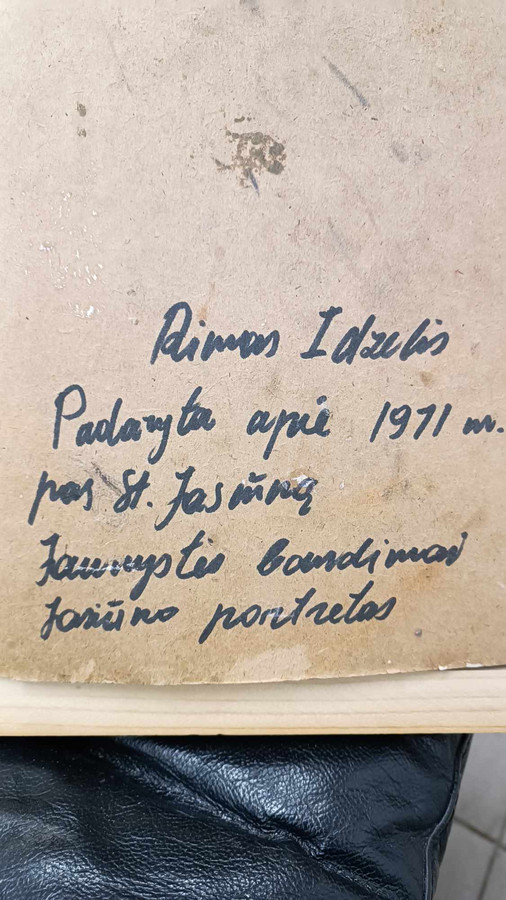 Rimas Idzelis
Padaryta apie 1971 m.
pas St. Jasiūną
Jaunystės bandimai
Jasiūno portretas